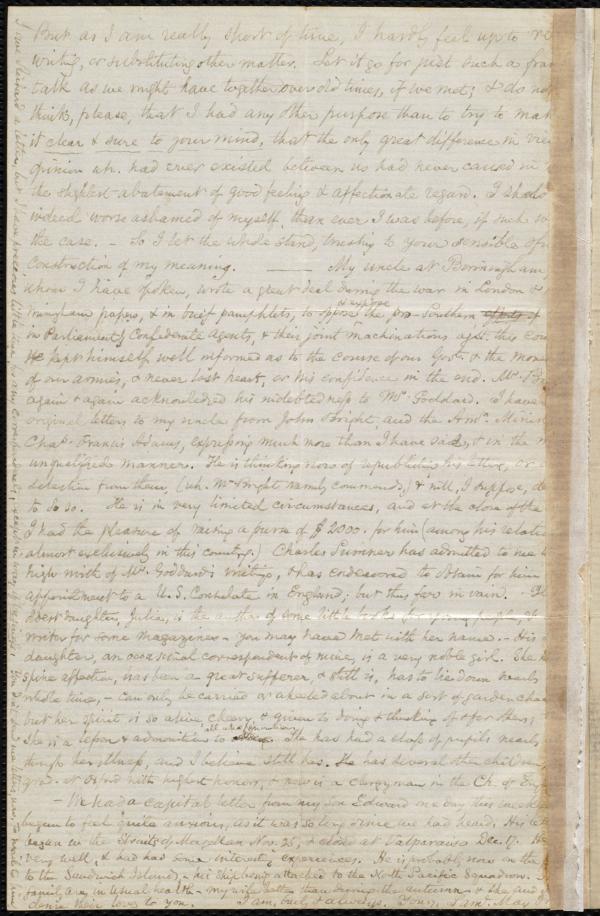 But as I am really short of time, I hardly feel up to re
writing, or substituting other matter. Let it go for just such a fra
talk as we might have together over old times, if we met; & do not
think, please, that I had any other purpose than to try to mak
it clear & sure to your mind, that the only great difference in vie
opinion wh. had ever existed between us had never caused in
the slightest abatement of good feeling & affectionate regard. I sho
indeed worse ashamed of myself than ever I was before, if such w
the case. – So I let the whole stand, trusting to your sensible &
construction of my meaning. —— My uncle at Birmingham
whom I have spoken, wrote a great deal during the war in London &
mingham papers, & in brief pamphlets, to oppose & expose the pro-Southern efforts of
in Parliament & Confederate agents, & their joint machinations agst. this cou
He kept himself well informed as to the course of our Govt. & the move
of our armies, & never lost heart, or his confidence in the end. Mr.
again & again acknowledged his indebtedness to Mr. Goddard. I have
original letters to my uncle from John Bright, and the Amn. Minis
Chas. Francis Adams, expressing much more than I have said, & in the m
unqualified manner. He is thinking now of republishing his letters, or
selection from them, (wh. Mr Wright warmly commends,) & will, I suppose, de
to do so. He is in very limited circumstances, and at the close of the
I had the pleasure of raising a purse of $2000. for him (among his relati
almost exclusively in this country.) Charles Sumner has admitted to me
high worth of Mr. Goddard's writings, & has endeavored to obtain for him
appointment to a U.S. Consulate in England; but thus far in vain.
oldest daughter, Julia, is the author of some little books for young people,
writer for some magazines – you may have met with her name. – His
daughter, an occasional correspondent of mine, is a very noble girl. She h
spine affection, has been a great sufferer, & still is, has to lie down nearly
whole time, – can only be carried or wheeled about in a sort of garden chair
but her spirit is so alive, cheery, & given to doing & thinking of & for others;
She is a lesson & admonition to all who know her. She has had a class of pupils nearly
through her illness, and I believe still has. He has several other children
grad. at Oxford with highest honors, & now is a clergyman in the Ch. of Eng
– We had a capital letter from my son Edward one day this week
begun to feel quite anxious, as it was so long since we had heard. His le
began in the Straits of Magellan Nov. 25, & closed at Valparaiso Dec. 17. He
very well, & had had some interesting experiences. He is probably now on the
to the Sandwich Islands, – his ship being attached to the North Pacific Squadron.
family are in usual health – my wife better than during the autumn – & she and
desire their love to you. I am, truly & always, Yours, Saml. May